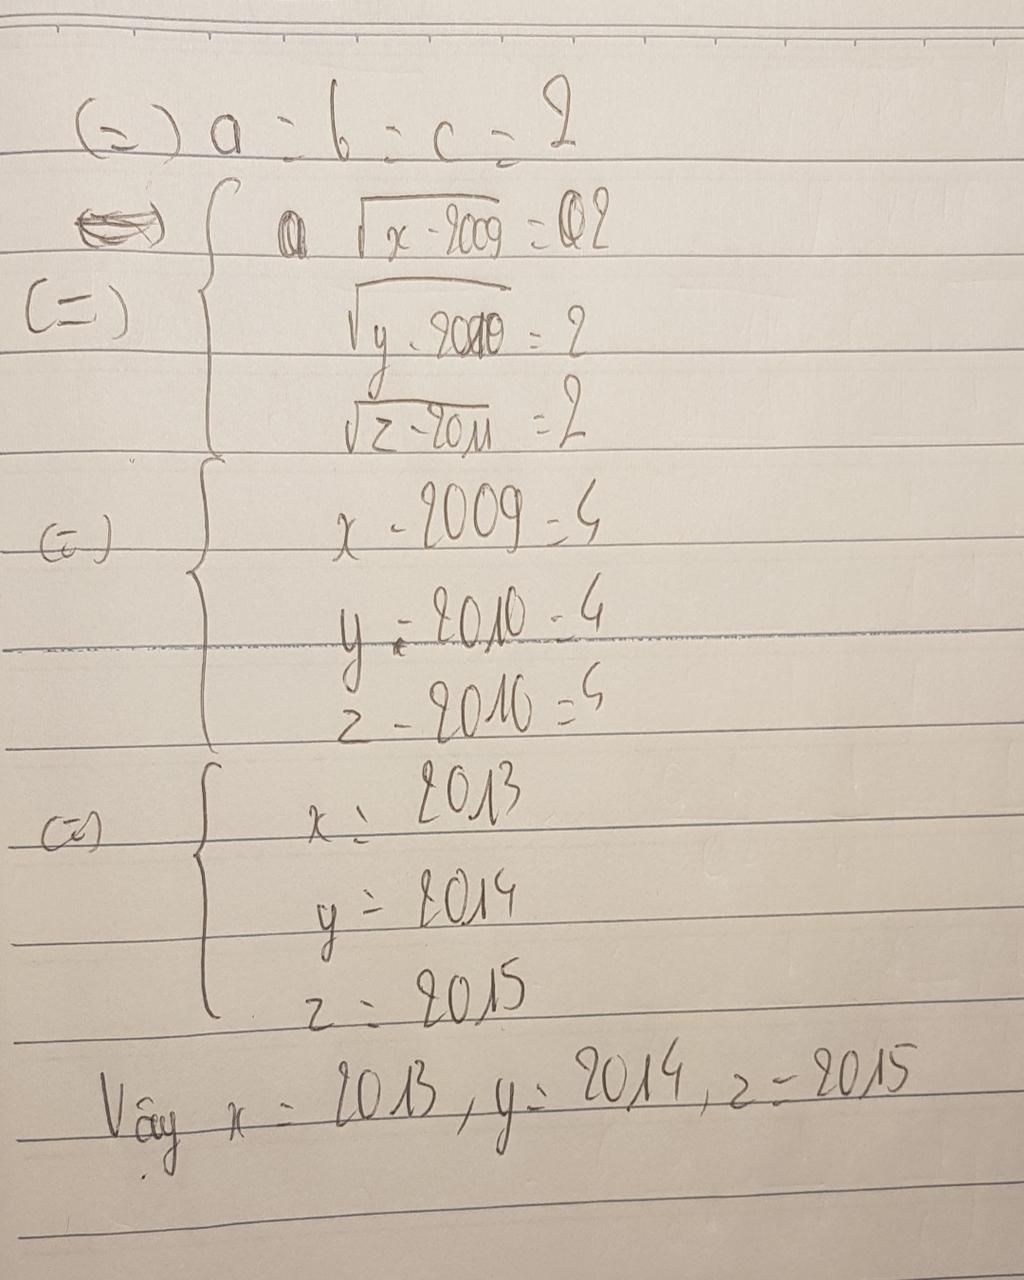 (=) a = b = c = 2
√x - 2009 = 2
(=) √y - 2010 = 2
√z - 2011 = 2
x - 2009 = 4
(=) y - 2010 = 4
z - 2010 = 4
x = 2013
(=) y = 2014
z = 2015
Vậy x = 2013, y = 2014, z = 2015